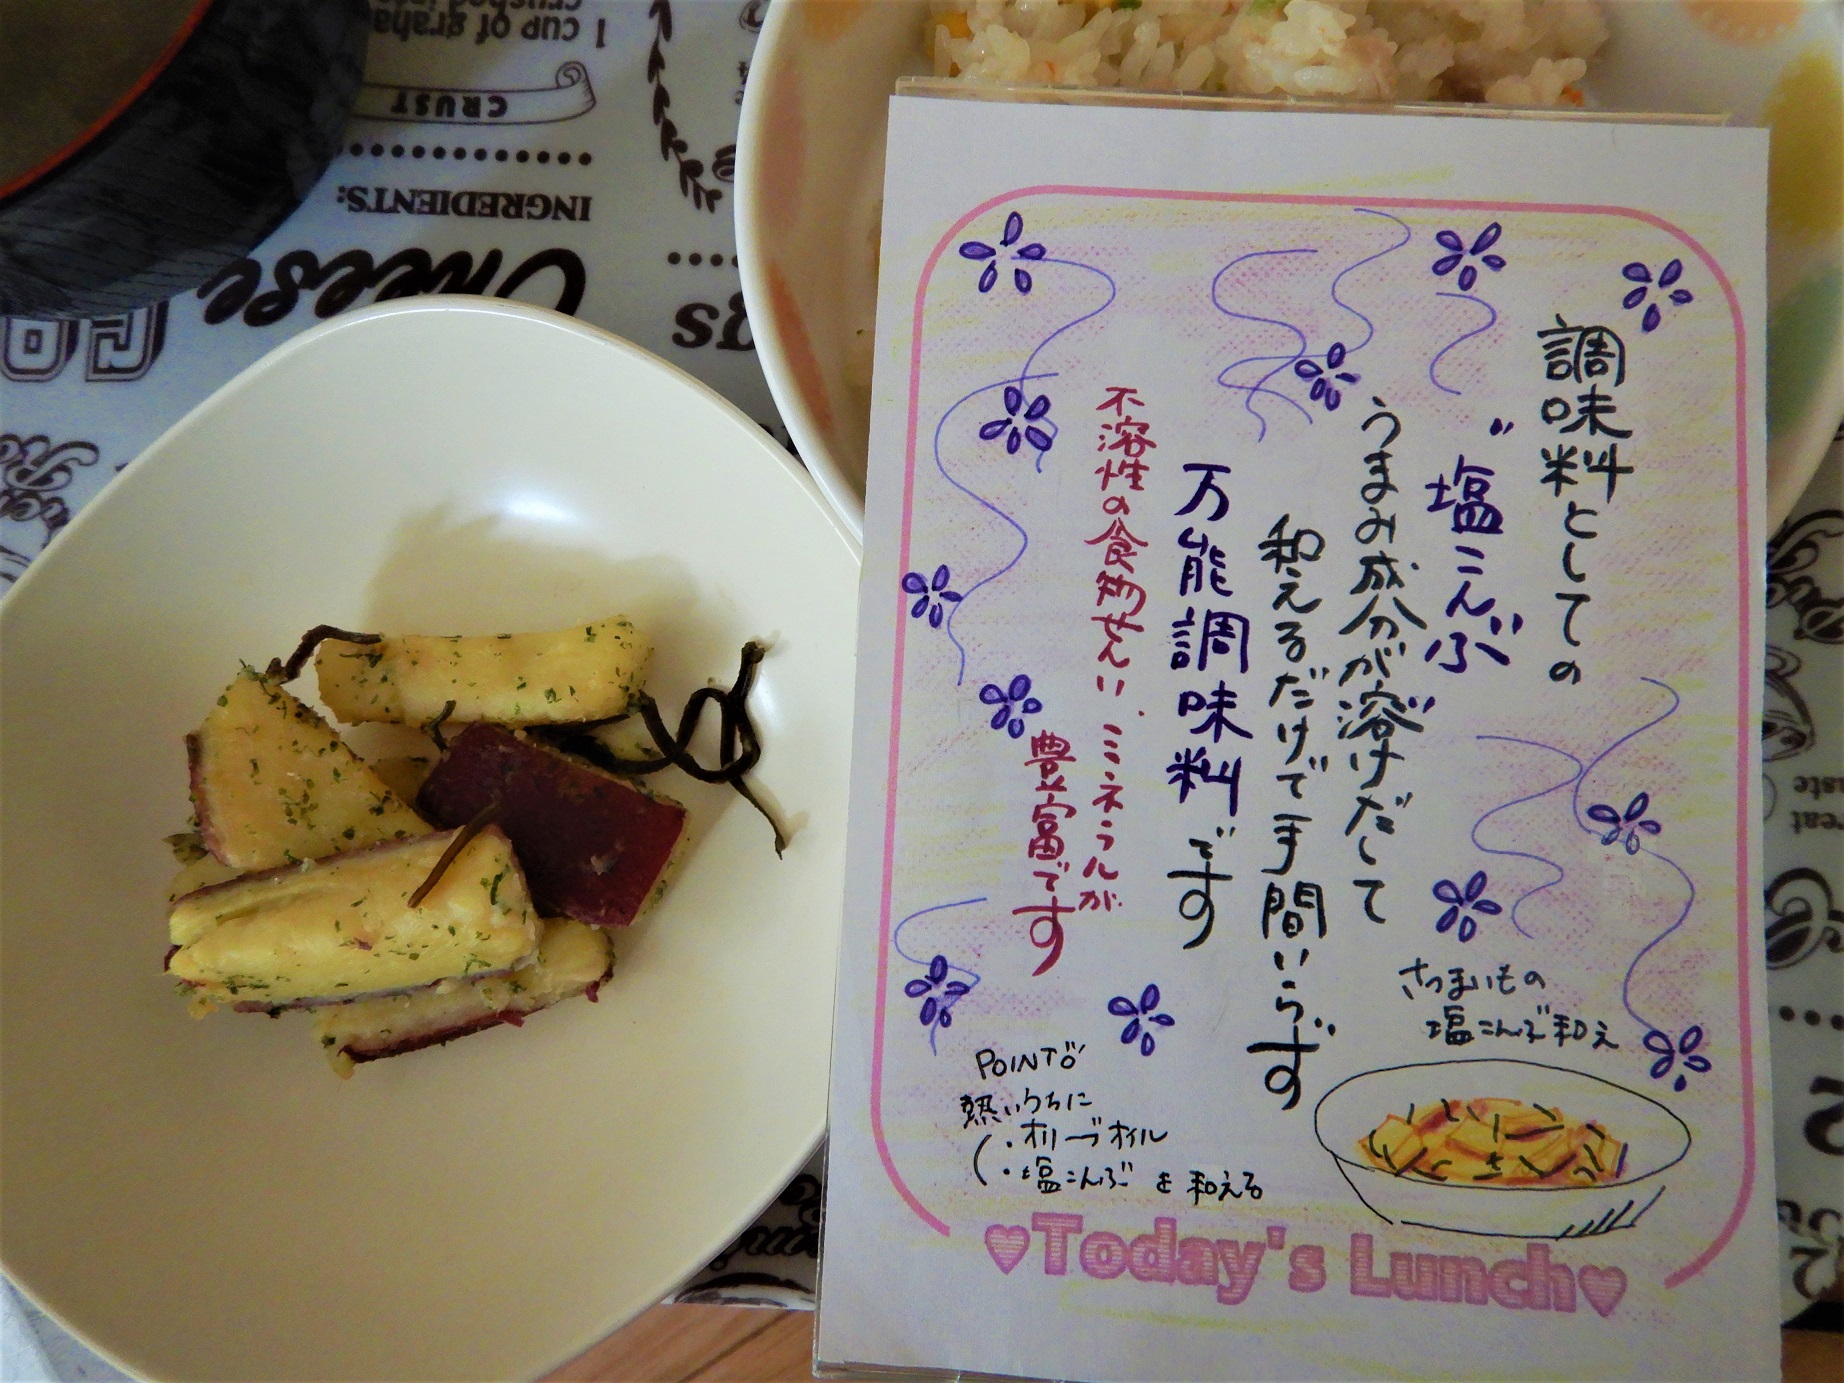 調味料としての
"塩こんぶ"
うまみ成分が溶けだして
和えるだけで手間いらず
万能調味料です
不溶性の食物せんい、ミネラルが
豊富です
さつまいもの
塩こんぶ和え
POINTは
熱いうちに
・オリーブオイル
・塩こんぶ を和える
♥Today's Lunch♥
1 cup of graha
CRUST
INGREDIENTS:
Cheese